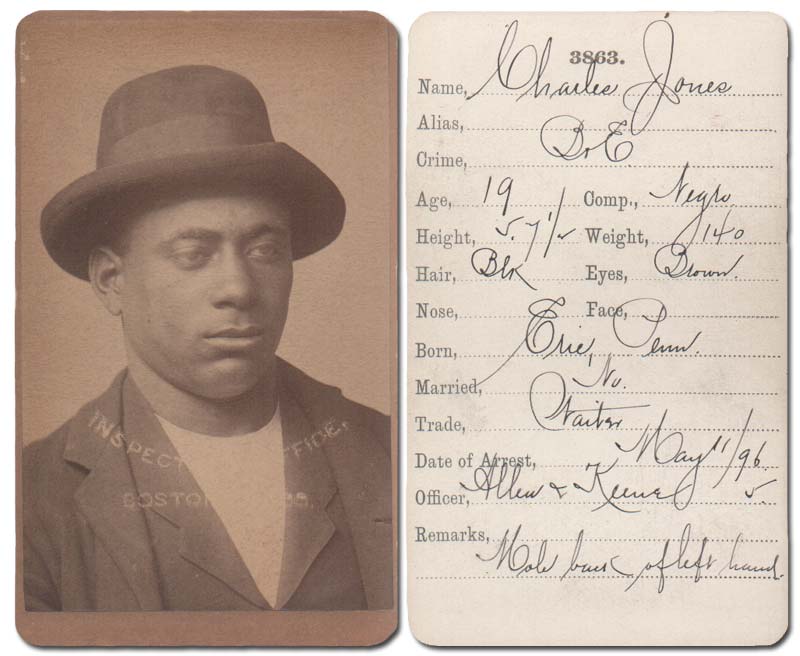 INSPECT FFICE,
BOSTON SS.
3863.
Name, Charles Jones
Alias,
Crime, B&E
Age, 19 Comp., Negro
Height, 5.7 1/2 Weight, 140
Hair, Blk Eyes, Brown.
Nose, Face,
Born, Erie, Penn.
Married, No.
Trade, Waiter
Date of Arrest, May 11/96.
Officer, Allen & Keene 5.
Remarks,
Mole back of left hand.